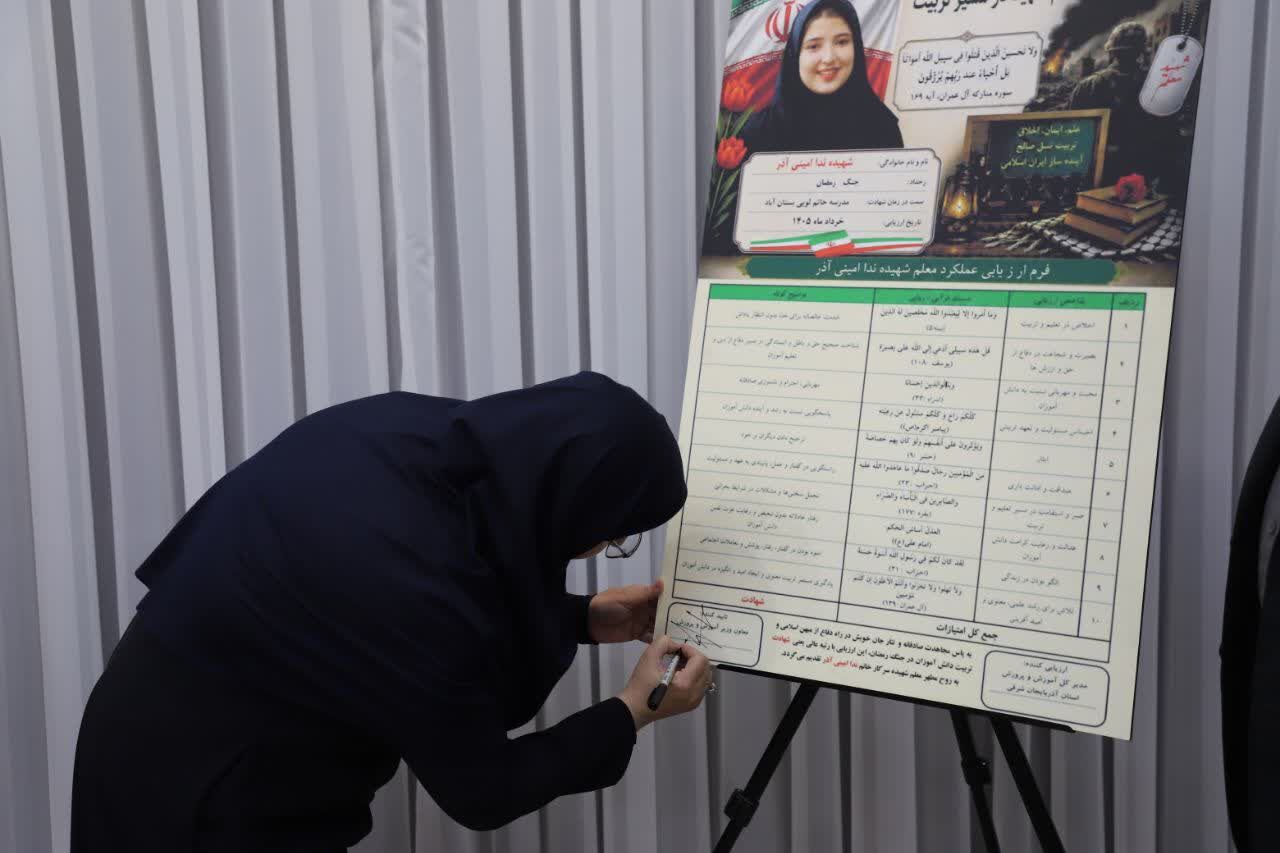 در مسیر تربیت
ولا تحسبن الذین قتلوا فی سبیل الله أمواتا
بل أحیاء عند ربهم یرزقون
سوره مبارکه آل عمران، آیه ۱۶۹
شهید
معلم
علم، ایمان، اخلاق
تربیت نسل صالح
آینده ساز ایران اسلامی
نام و نام خانوادگی: شهیده ندا امینی آذر
رخداد: جنگ رمضان
سمت در زمان شهادت: مدرسه خاتم لویی بستان آباد
تاریخ ارزیابی: خرداد ماه ۱۴۰۵
فرم ارزیابی عملکرد معلم شهیده ندا امینی آذر
ردیف شاخص ارزیابی مستند قرآنی - روایی توضیح کوتاه
۱ اخلاص در تعلیم و تربیت وَما أُمِروا إِلّا لِیَعبُدُوا اللَّه مُخلِصینَ لَهُ الدّینَ (بینه۵) خدمت خالصانه برای خدا بدون انتظار پاداش
۲ بصیرت و شجاعت در دفاع از حق و ارزش ها قل هذه سبیلی أدعو إلی الله علی بصیرة (یوسف ۱۰۸) شناخت صحیح حق و باطل و ایستادگی در مسیر دفاع از دین و تعلیم آموزان
۳ محبت و مهربانی نسبت به دانش آموزان وبالوالدین إحسانا (اسراء ۲۳) مهربانی، احترام و دلسوزی صادقانه
۴ احساس مسئولیت و تعهد تربیتی کلکم راع و کلکم مسئول عن رعیته (پیامبر اکرم(ص)) پاسخگویی نسبت به رشد و آینده دانش آموزان
۵ ایثار ویؤثرون علی أنفسهم ولو کان بهم خصاصة (حشر ۹) ترجیح دادن دیگران بر خود
۶ صداقت و امانت داری من المؤمنین رجال صدقوا ما عاهدوا الله علیه (احزاب ۲۳) راستگویی در گفتار و عمل، پایبندی به عهد و مسئولیت
۷ صبر و استقامت در مسیر تعلیم و تربیت والصابرین فی البأساء والضراء (بقره ۱۷۷) تحمل سختی‌ها و مشکلات در شرایط بحرانی
۸ عدالت و رعایت کرامت دانش آموزان العدل أساس الحکم (امام علی(ع)) رفتار عادلانه بدون تبعیض و رعایت عزت نفس دانش آموزان
۹ الگو بودن در زندگی لقد کان لکم فی رسول الله أسوة حسنة (احزاب ۲۱) اسوه بودن در گفتار، رفتار، پوشش و تعاملات اجتماعی
۱۰ تلاش برای رشد علمی، معنوی و امید آفرینی ولا تهنوا ولا تحزنوا وأنتم الأعلون إن کنتم مؤمنین (آل عمران ۱۳۹) یادگیری مستمر تربیت معنوی و ایجاد امید و انگیزه در دانش آموزان
جمع کل امتیازات شهادت
به پاس مجاهدت صادقانه و نثار جان خویش در راه دفاع از میهن اسلامی و
تربیت دانش آموزان در جنگ رمضان، این ارزیابی با رتبه عالی یعنی شهادت
به روح مطهر معلم شهیده سرکار خانم ندا امینی آذر تقدیم می‌گردد.
ارزیابی کننده:
مدیر کل آموزش و پرورش
استان آذربایجان شرقی
تایید کننده:
معاون وزیر آموزش و پرورش